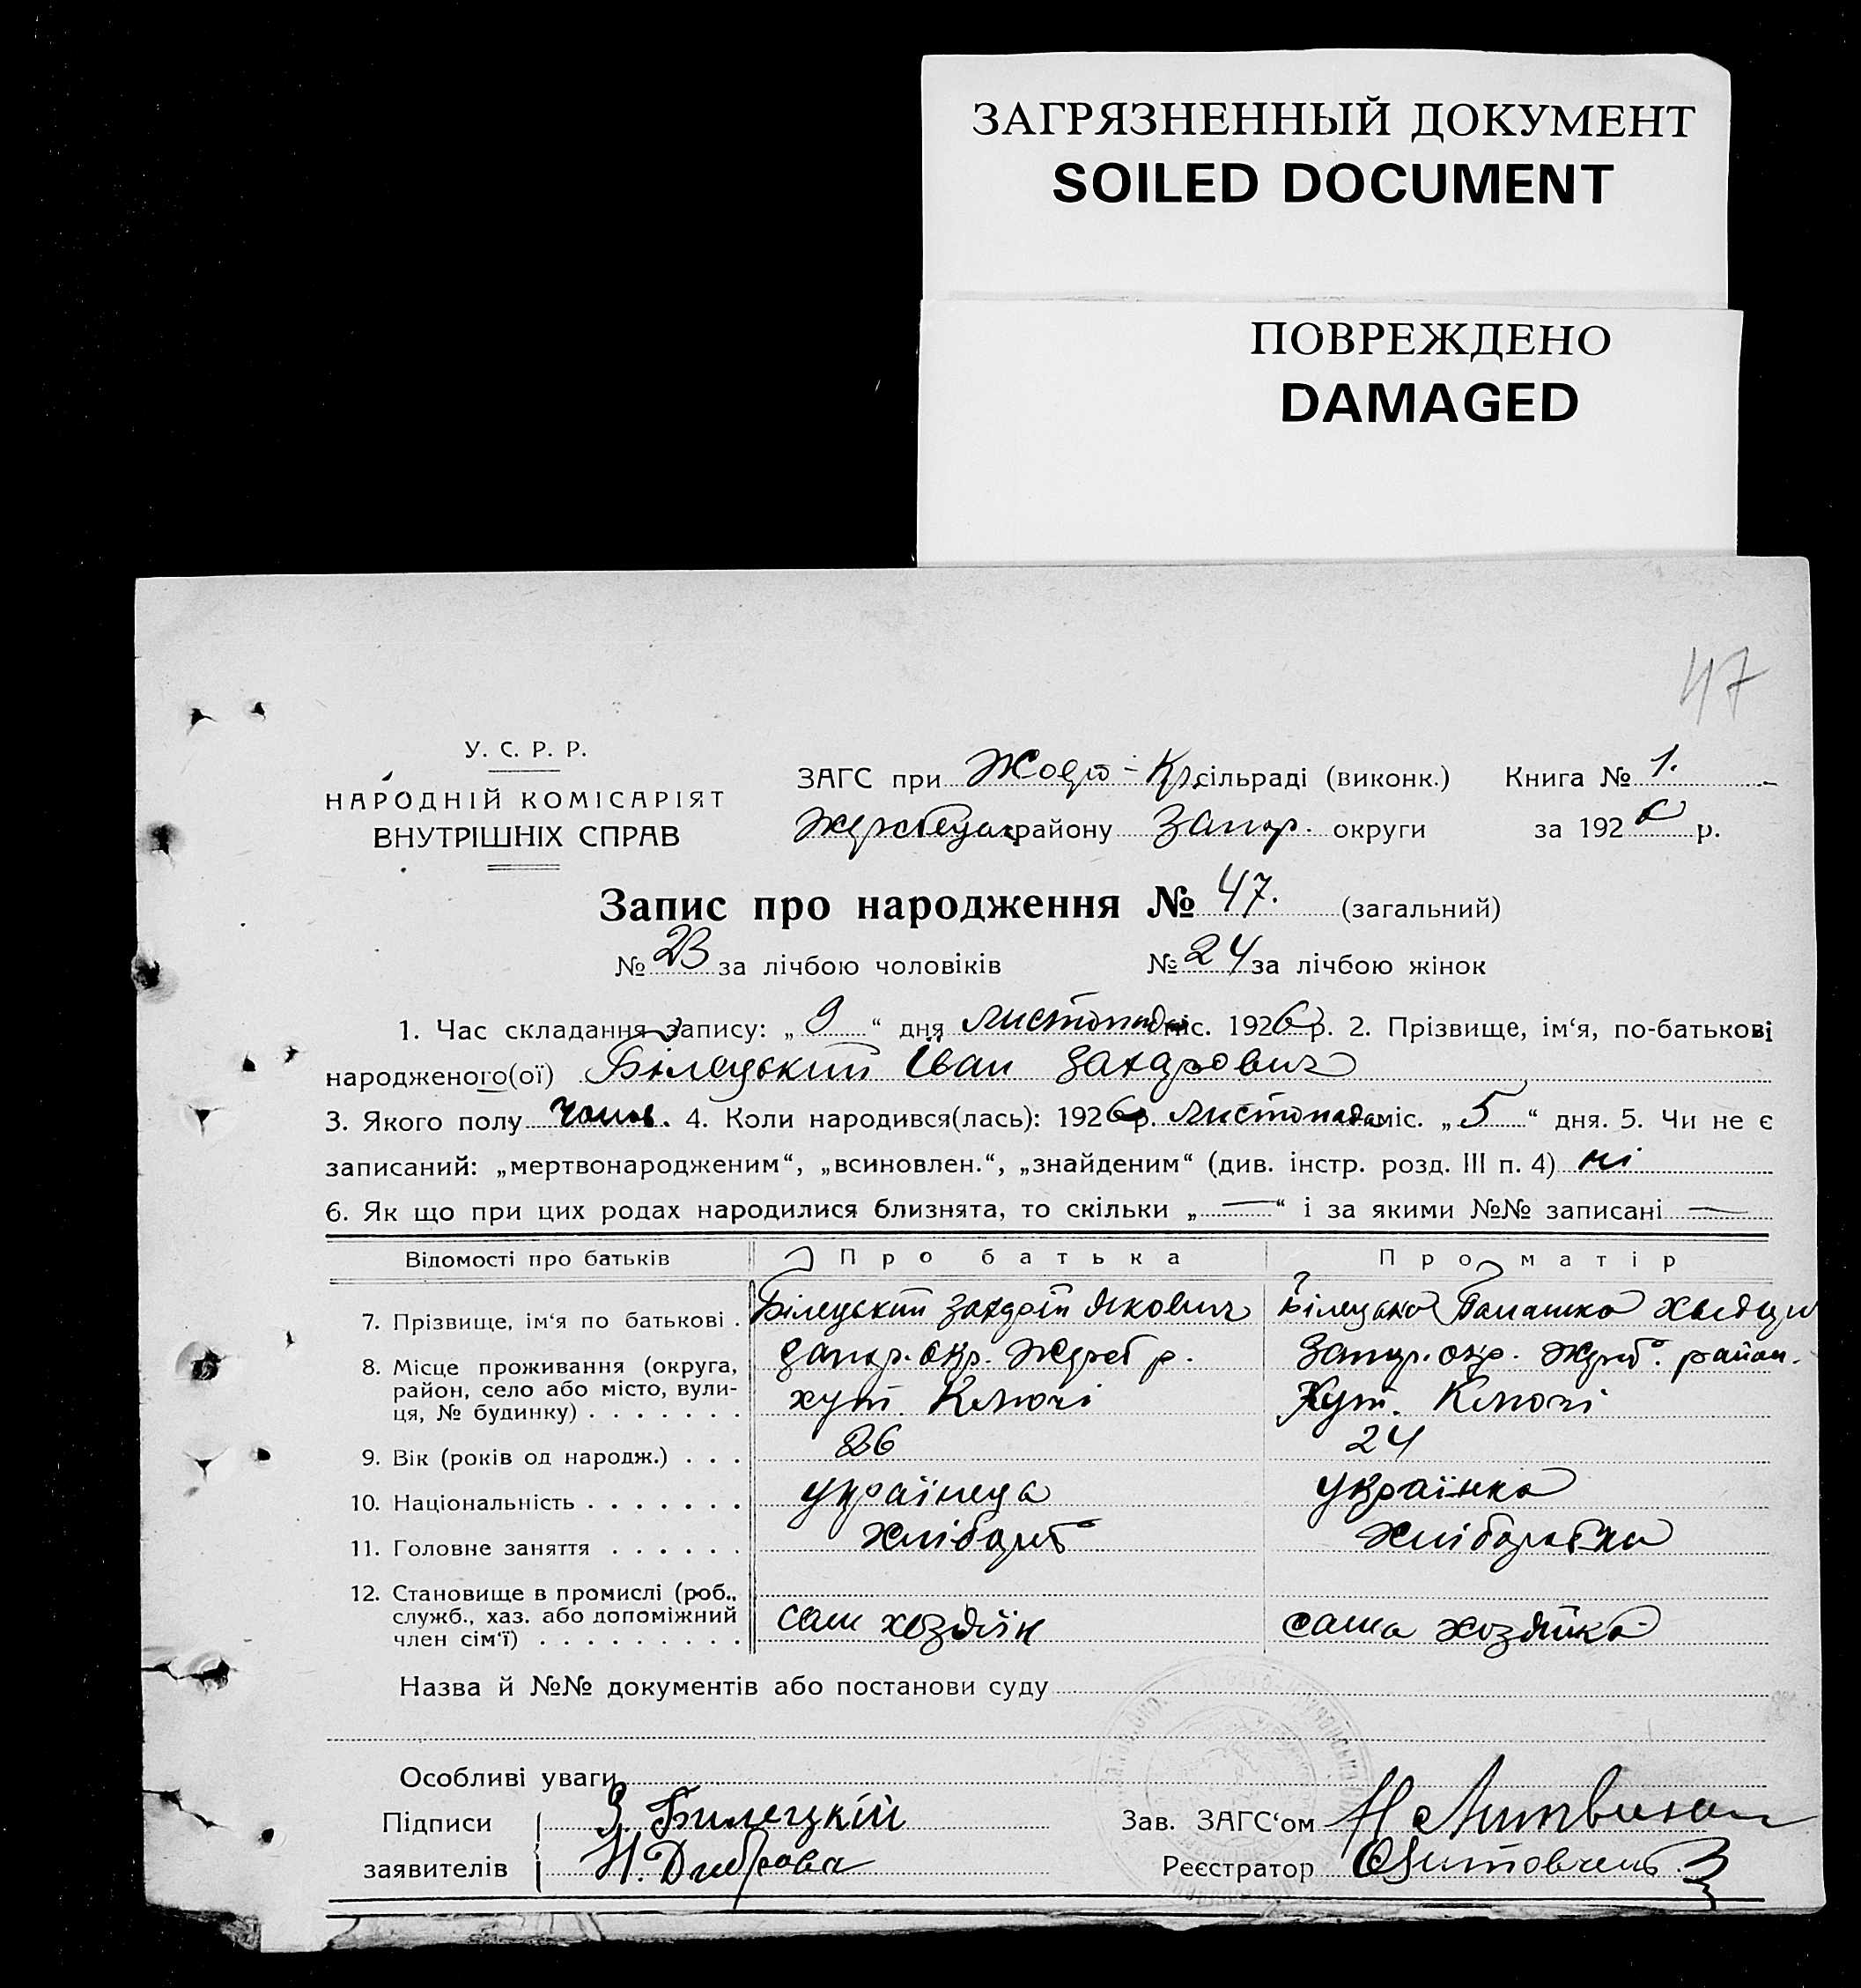 ЗАГРЯЗНЕННЫЙ ДОКУМЕНТ
SOILED DOCUMENT
ПОВРЕЖДЕНО
DAMAGED
47
У. С. Р. Р.
НАРОДНІЙ КОМІСАРІЯТ
ВНУТРІШНІХ СПРАВ
ЗАГС при Жовто-Кр. сільраді (виконк.) Книга № 1.
району Запор. округи за 1926 р.
Запис про народження № 47. (загальний)
№ 23 за лічбою чоловіків № 24 за лічбою жінок
1. Час складання запису: „ 9 “ дня листопада міс. 1926 р. 2. Прізвище, ім‘я, по-батькові
народженого(ої) Білецький Іван Захарович
3. Якого полу чолов. 4. Коли народився(лась): 1926 р. листопада міс. „ 5 “ дня. 5. Чи не є
записаний: „мертвонародженим“, „всиновлен.“, „знайденим“ (див. інстр. розд. III п. 4) ні
6. Як що при цих родах народилися близнята, то скільки „ — “ і за якими №№ записані —
Відомості про батьків Про батька Про матір
7. Прізвище, ім‘я по батькові . Білецький Захарій Якович Білецька Палашка
8. Місце проживання (округа, Запор. окр. Жереб р. Запор. окр. Жереб. район.
район, село або місто, вули- хут. Ключі Хут. Ключі
ця, № будинку) . . . . . . .
9. Вік (років од народж.) . . . 26 24
10. Національність . . . . . . . українець українка
11. Головне заняття . . . . . . хлібороб хліборобка
12. Становище в промислі (роб.,
служб., хаз. або допоміжний сам хозяїн сама хозяйка
член сім‘ї) . . . . . . . . .
Назва й №№ документів або постанови суду
Особливі уваги
Підписи З. Билецкій Зав. ЗАГС‘ом
заявителів Н. Диброва Реєстратор